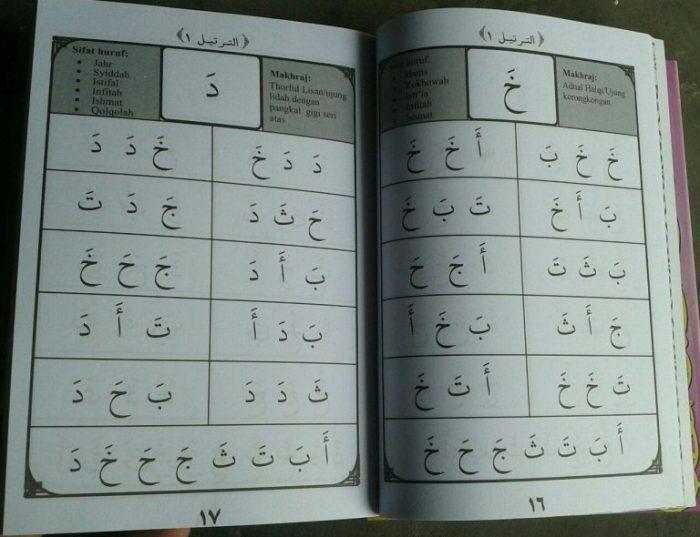 ﴿ الترتيل ١ ﴾
huruf:
Hams
Rokhowah
Isti'la
Infitah
Ishmat
خَ
Makhraj:
Adnal Halqi/Ujung
kerongkongan.
خَ خَ بَ
أَ خَ خَ
بَ أَ خَ
تَ بَ خَ
بَ ثَ تَ
أَ جَ حَ
جَ أَ ثَ
بَ خَ أَ
تَ خَ خَ
أَ تَ خَ
أَ بَ تَ ثَ جَ حَ خَ
١٦
﴿ الترتيل ١ ﴾
Sifat huruf:
Jahr
Syiddah
Istifal
Infitah
Ishmat
Qolqolah
دَ
Makhraj:
Thorful Lisan/ujung
lidah dengan
pangkal gigi seri
atas
دَ دَ خَ
خَ دَ دَ
حَ ثَ دَ
جَ دَ تَ
بَ أَ دَ
جَ حَ خَ
بَ دَ أَ
تَ أَ دَ
ثَ دَ دَ
بَ حَ دَ
أَ بَ تَ ثَ جَ حَ خَ دَ
١٧